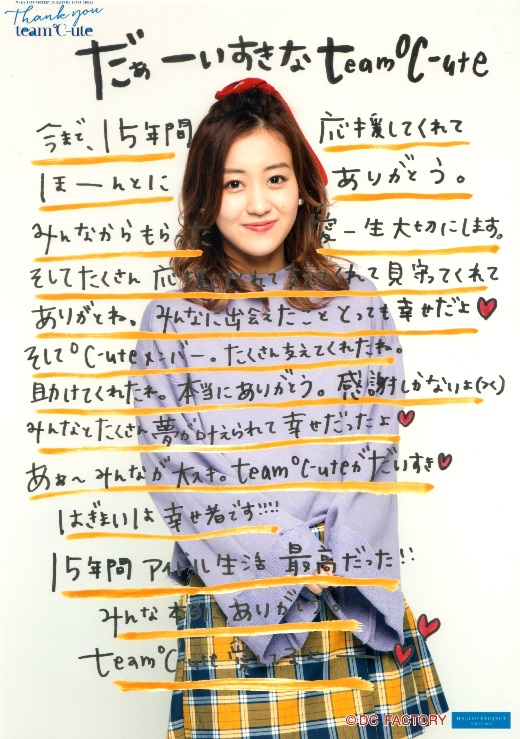 Thank you
team℃-ute
だぁーいすきなteam℃-ute
今まで、15年間 応援してくれて
ほーんとに ありがとう。
みんなからもらった愛一生大切にします。
そしてたくさん 応援してくれて くれて見守ってくれて
ありがとね。みんなに出会えたこと とっても幸せだよ♥
そして℃-uteメンバー。たくさん支えてくれたね。
助けてくれたね。本当にありがとう。感謝しかないよ(><)
みんなとたくさん夢が叶えられて幸せだったよ♥
あぁ〜みんなが大スキ。team℃-uteがだいすき♥
はぎまいは幸せ者です!!!!
15年間アイドル生活 最高だった!!
みんな本当 ありがとう。
team℃-ute
©DC FACTORY
HELLO! PROJECT